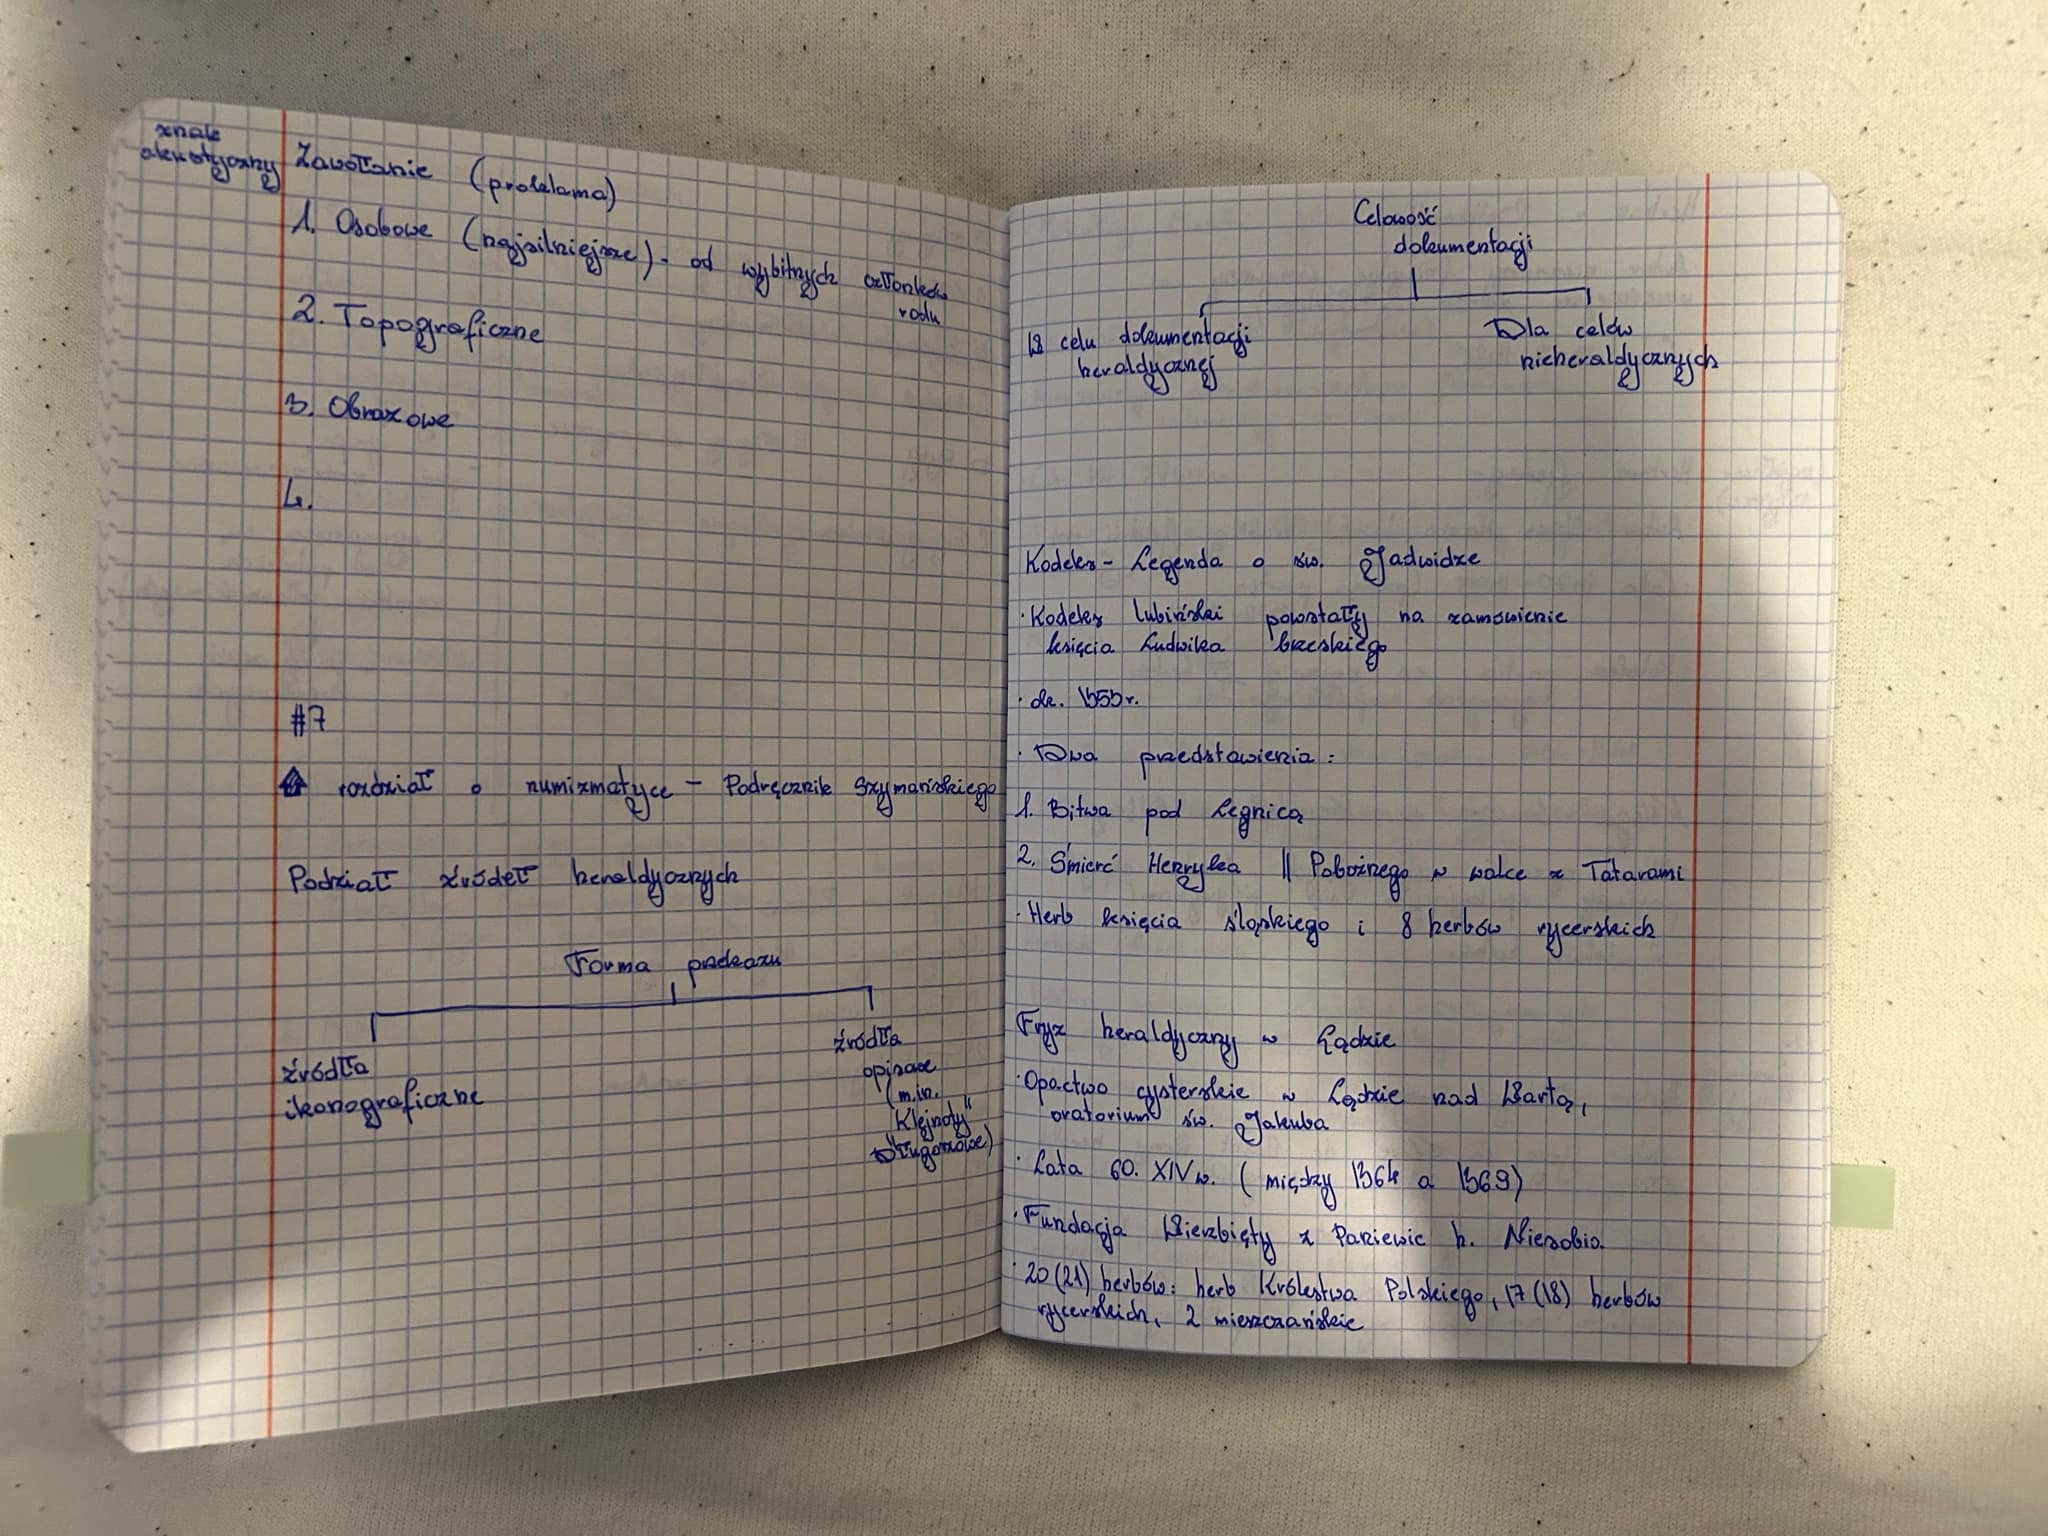 znak
akustyczny
Zawołanie (proklama)
1. Osobowe (najsilniejsze) - od wybitnych członków
rodu
2. Topograficzne
3. Obrazowe
4.
#7
rozdział o numizmatyce - Podręcznik Szymańskiego
Podział źródeł heraldycznych
Forma przekazu
źródła
ikonograficzne
źródła
opisowe
(m.in.
"Klejnoty"
Długoszowe)
Celowość
dokumentacji
W celu dokumentacji
heraldycznej
Dla celów
nieheraldycznych
Kodeks - Legenda o św. Jadwidze
· Kodeks lubiński powstały na zamówienie
księcia Ludwika brzeskiego
· ok. 1353 r.
· Dwa przedstawienia:
1. Bitwa pod Legnicą
2. Śmierć Henryka II Pobożnego w walce z Tatarami
· Herb księcia śląskiego i 8 herbów rycerskich
Fryz heraldyczny w Lądzie
· Opactwo cysterskie w Lądzie nad Wartą,
oratorium św. Jakuba
· Lata 60. XIV w. (między 1364 a 1369)
· Fundacja Wierzbięty z Paniewic h. Niesobia
· 20 (21) herbów: herb Królestwa Polskiego, 17 (18) herbów
rycerskich, 2 mieszczańskie